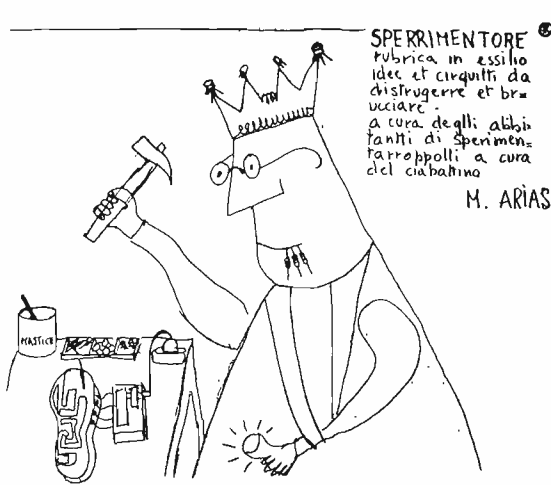 SPERRIMENTORE
rubrica in essilio
idee et cirquitti da
distrugerre et br=
ucciare.
a cura deglli abbi=
tantti di sperimen=
tarroppolli a cura
del ciabattino
M. ARIAS
MASTICE